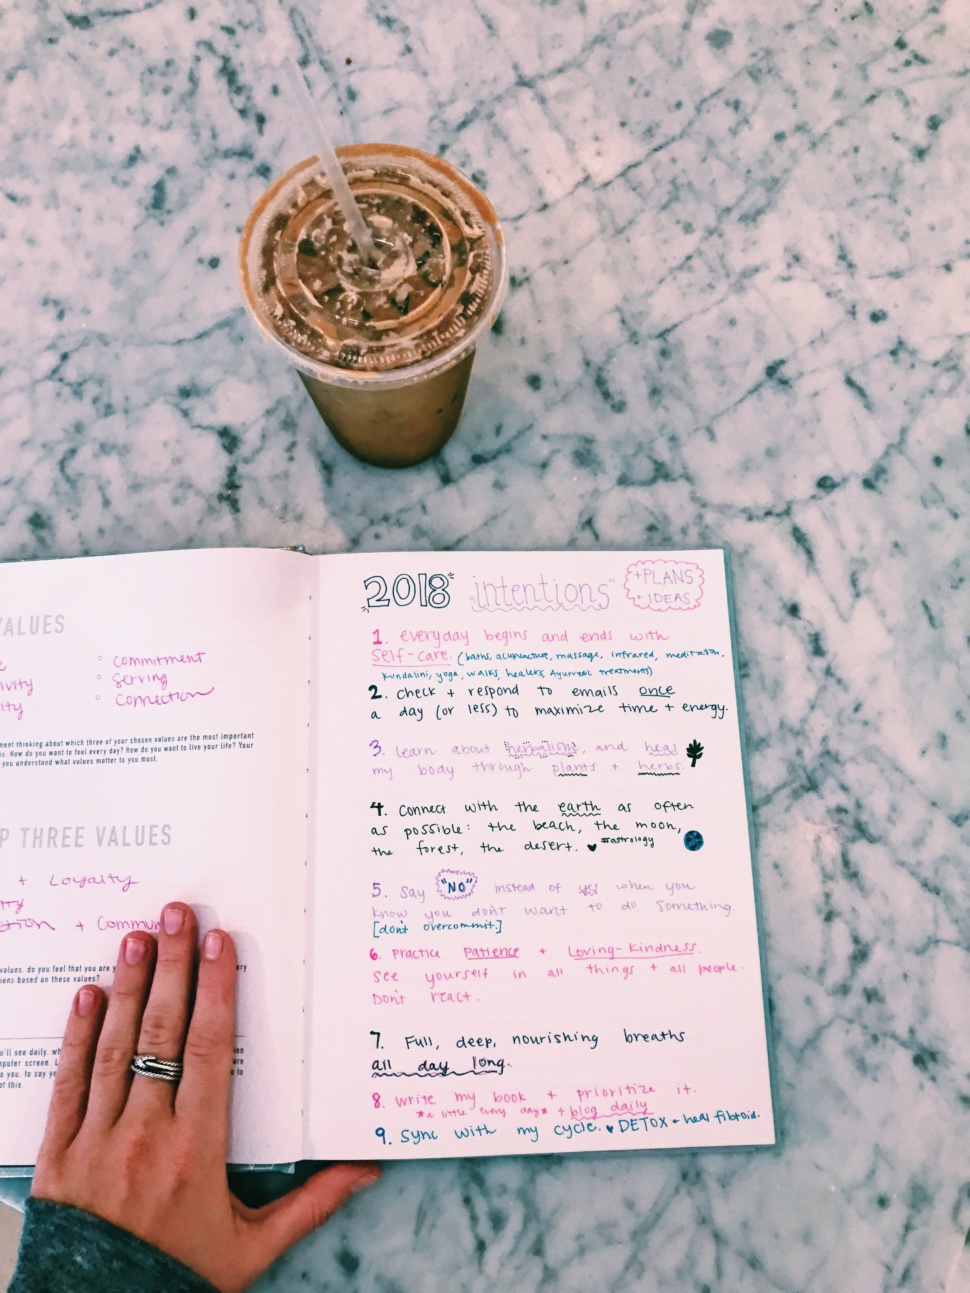 VALUES
commitment
tivity
serving
ity
connection
ment thinking about which three of your chosen values are the most important
is. How do you want to feel every day? How do you want to live your life? Your
you understand what values matter to you most
P THREE VALUES
+ Loyalty
ity
ction + Commun
values, do you feel that you are y
ions based on these values?
u'll see daily, wh
puter screen. L
o you, to say ye
of this
2018 intentions
+PLANS
+ IDEAS
1. everyday begins and ends with
self-care. (baths, acupuncture, massage, infrared, meditation,
kundalini, yoga, walks, healers, Ayurvedic treatments)
2. Check + respond to emails once
a day (or less) to maximize time + energy.
3. learn about herbalism, and heal
my body through plants + herbs.
4. Connect with the earth as often
as possible: the beach, the moon,
the forest, the desert. ♥ #astrology
5. Say "NO" instead of yes when you
know you don't want to do something.
[don't overcommit.]
6. Practice Patience + Loving-Kindness.
See yourself in all things + all people.
Don't react.
7. Full, deep, nourishing breaths
all day long.
8. write my book + prioritize it.
*a little every day* + blog daily
9. Sync with my cycle. ♥ DETOX + heal fibroid.